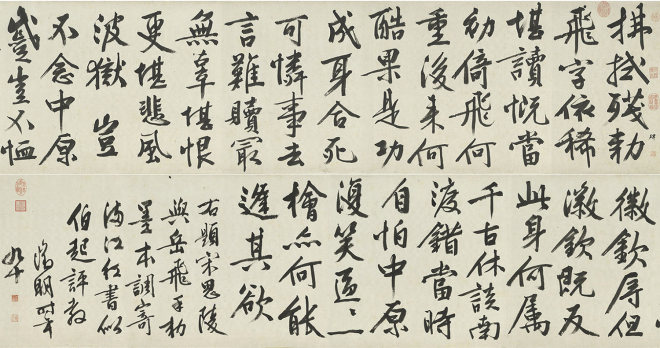 拂拭殘勑
碑
飛字依稀
堪讀慨當
初倚飛何
重後來何
酷果是功
成身合死
可憐事去
言難贖冣
無辜堪恨
更堪悲風
波獄 豈
不念中原
蹙豈不恤
徽欽辱但
徽欽既反
此身何属
千古休談南
渡錯當時
自怕中原
復笑區〻一
檜亦何能
逢其欲
右題宋思陵
與岳飛手勑
墨本調寄
滿江紅書似
伯起評教
徵明時年
九十